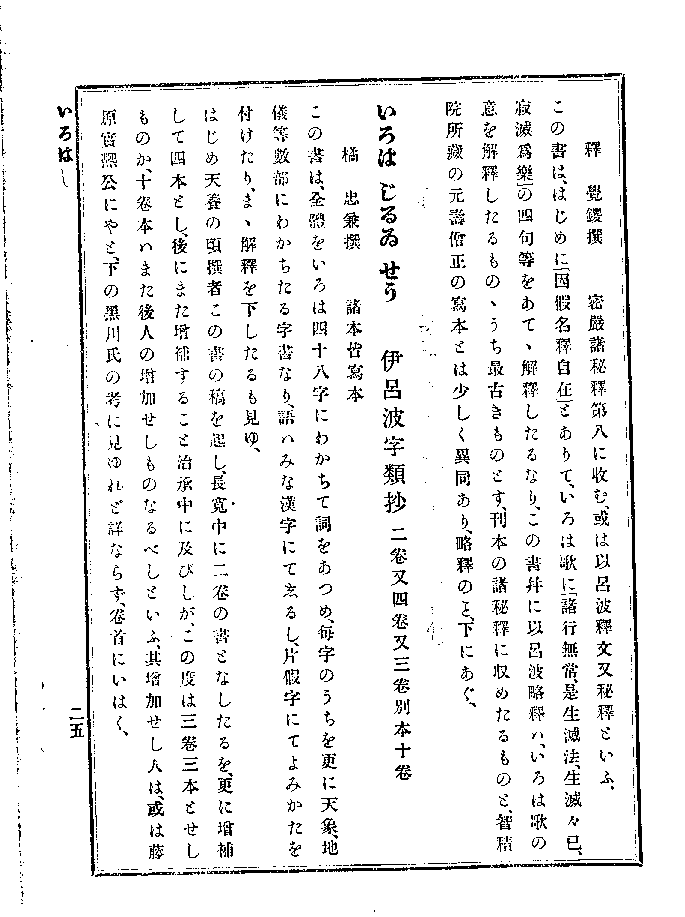 釋覺鑁撰　密嚴諸秘釋第八に收む、或は以呂波釋文又秘釋といふ、
この書は、はじめに「因假名釋自在」とありて、いろは歌に「諸行無常、是生滅法、生滅々已、
寂滅爲樂」の四句等をあてゝ解釋したるなり、この書幷に以呂波略釋ハ、いろは歌の
意を解釋したるものゝうち最古きものとす、刊本の諸秘釋に収めたるものと、智積
院所藏の元壽僧正の寫本とは少しく異同あり、略釋のと、下にあぐ、
いろは じるゐ せう　伊呂波字類抄 二卷又四卷又三卷別本十卷
橘忠兼撰　諸本皆寫本
この書は、全體をいろは四十八字にわかちて詞をあつめ、每字のうちを更に天象、地
儀等數部にわかちたる字書なり、語ハみな漢字にて玄るし、片假字にてよみかたを
付けたり、まゝ解釋を下したるも見ゆ、
はじめ天養の頃撰者この書の稿を起し、長寬中に二卷の書となしたるを、更に增補
して四本とし、後にまた增補すること治承中に及びしが、この度は三卷三本とせし
ものか、十卷本ハまた後人の增加せしものなるべしといふ、其增加せし人は、或は藤
原實凞公にやと、下の黑川氏の考に見ゆれど詳ならず、卷首にいはく、
いろは
二五